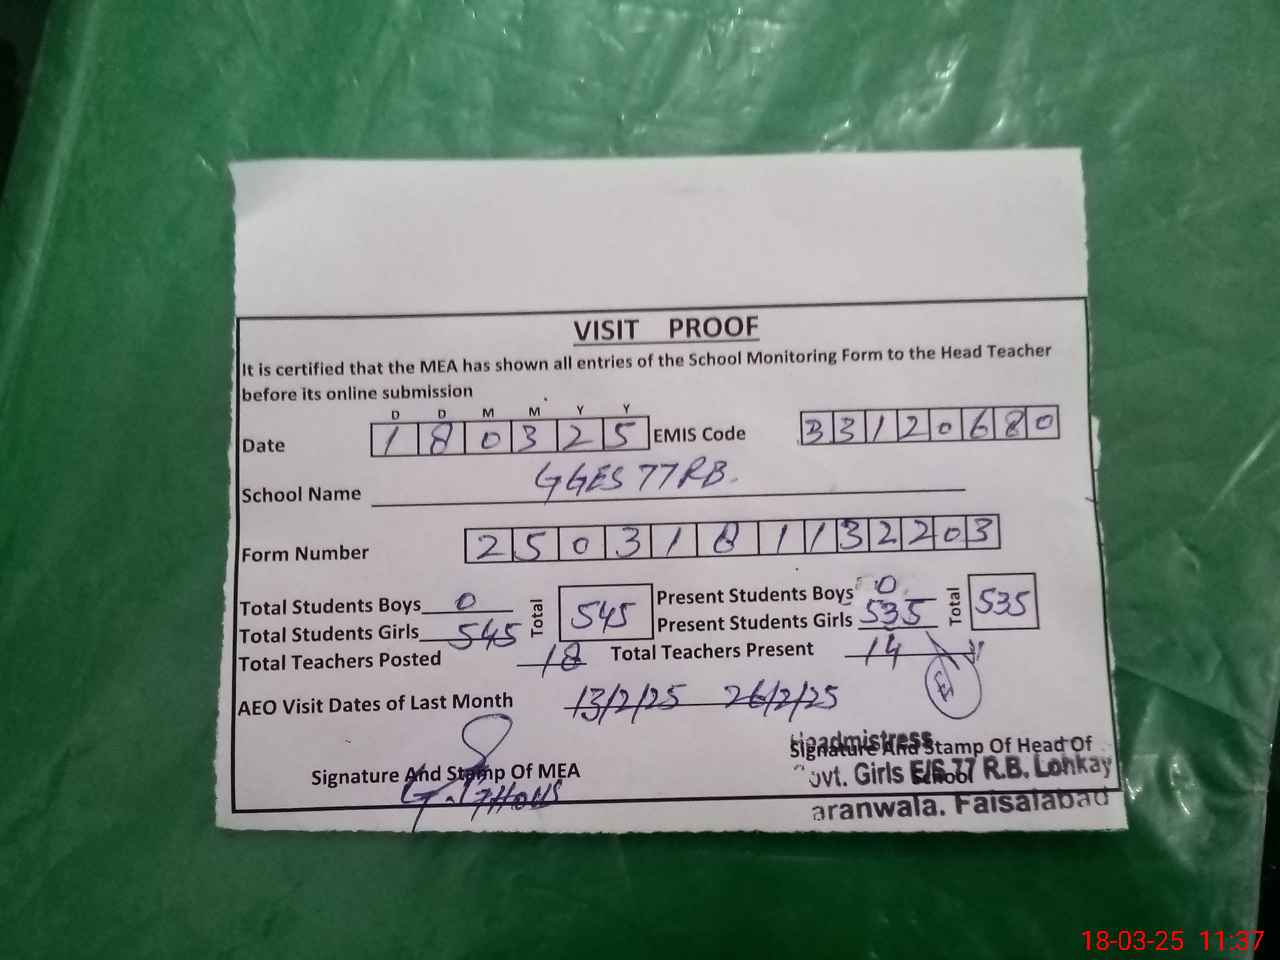 VISIT PROOF
It is certified that the MEA has shown all entries of the School Monitoring Form to the Head Teacher
before its online submission
D D M M Y Y
Date 1 8 0 3 2 5 EMIS Code 3 3 1 2 0 6 8 0
School Name GGES 77 RB.
Form Number 2 5 0 3 1 8 1 1 3 2 2 0 3
Total Students Boys 0 Total 545 Present Students Boys 0 Total 535
Total Students Girls 545 Present Students Girls 535
Total Teachers Posted 18 Total Teachers Present 14
AEO Visit Dates of Last Month 13/2/25 26/2/25
Headmistress
Signature And Stamp Of MEA Signature And Stamp Of Head Of
School
Govt. Girls E/S 77 R.B. Lohkay
aranwala. Faisalabad
18-03-25 11:37